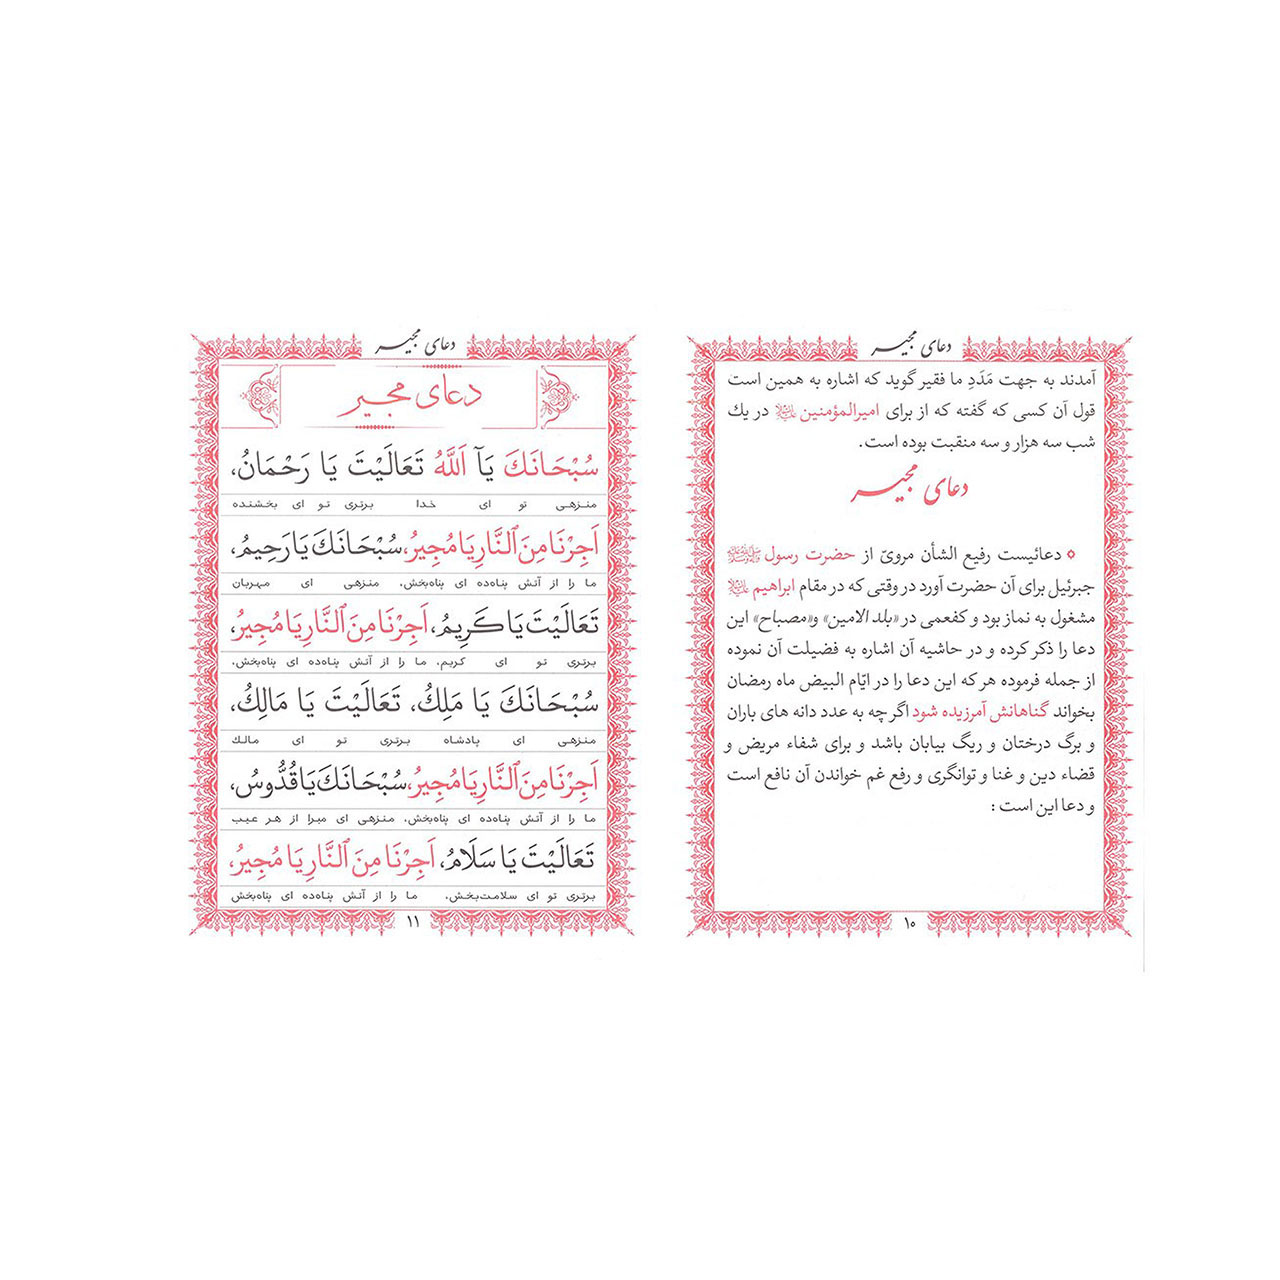 دعای مجیر
آمدند به جهت مَدَدِ ما فقیر گوید که اشاره به همین است
قول آن کسی که گفته که از برای امیرالمؤمنین در یك
شب سه هزار و سه منقبت بوده است.
دعای مجیر
دعائیست رفیع الشأن مرویّ از حضرت رسول ﷺ
جبرئیل برای آن حضرت آورد در وقتی که در مقام ابراهیم
مشغول به نماز بود و کفعمی در «بلد الامین» و«مصباح» این
دعا را ذکر کرده و در حاشیه آن اشاره به فضیلت آن نموده
از جمله فرموده هر که این دعا را در ایّام البیض ماه رمضان
بخواند گناهانش آمرزیده شود اگر چه به عدد دانه های باران
و برگ درختان و ریگ بیابان باشد و برای شفاء مریض و
قضاء دین و غنا و توانگری و رفع غم خواندن آن نافع است
و دعا این است :
۱۰
دعای مجیر
دعای مجیر
سُبْحَانَكَ يَآ اَللَّهُ تَعَالَيْتَ يَا رَحْمَانُ،
منزهی تو ای خدا برتری تو ای بخشنده
اَجِرْنَا مِنَ ٱلنَّارِ يَا مُجِيرُ، سُبْحَانَكَ يَا رَحِيمُ،
ما را از آتش پناه‌ده ای پناه‌بخش، منزهی ای مهربان
تَعَالَيْتَ يَا كَرِيمُ، اَجِرْنَا مِنَ ٱلنَّارِ يَا مُجِيرُ،
برتری تو ای کریم، ما را از آتش پناه‌ده ای پناه‌بخش،
سُبْحَانَكَ يَا مَلِكُ، تَعَالَيْتَ يَا مَالِكُ،
منزهی ای پادشاه برتری تو ای مالك
اَجِرْنَا مِنَ ٱلنَّارِ يَا مُجِيرُ، سُبْحَانَكَ يَا قُدُّوسُ،
ما را از آتش پناه‌ده ای پناه‌بخش، منزهی ای مبرا از هر عیب
تَعَالَيْتَ يَا سَلَامُ، اَجِرْنَا مِنَ ٱلنَّارِ يَا مُجِيرُ،
برتری تو ای سلامت‌بخش، ما را از آتش پناه‌ده ای پناه‌بخش
۱۱